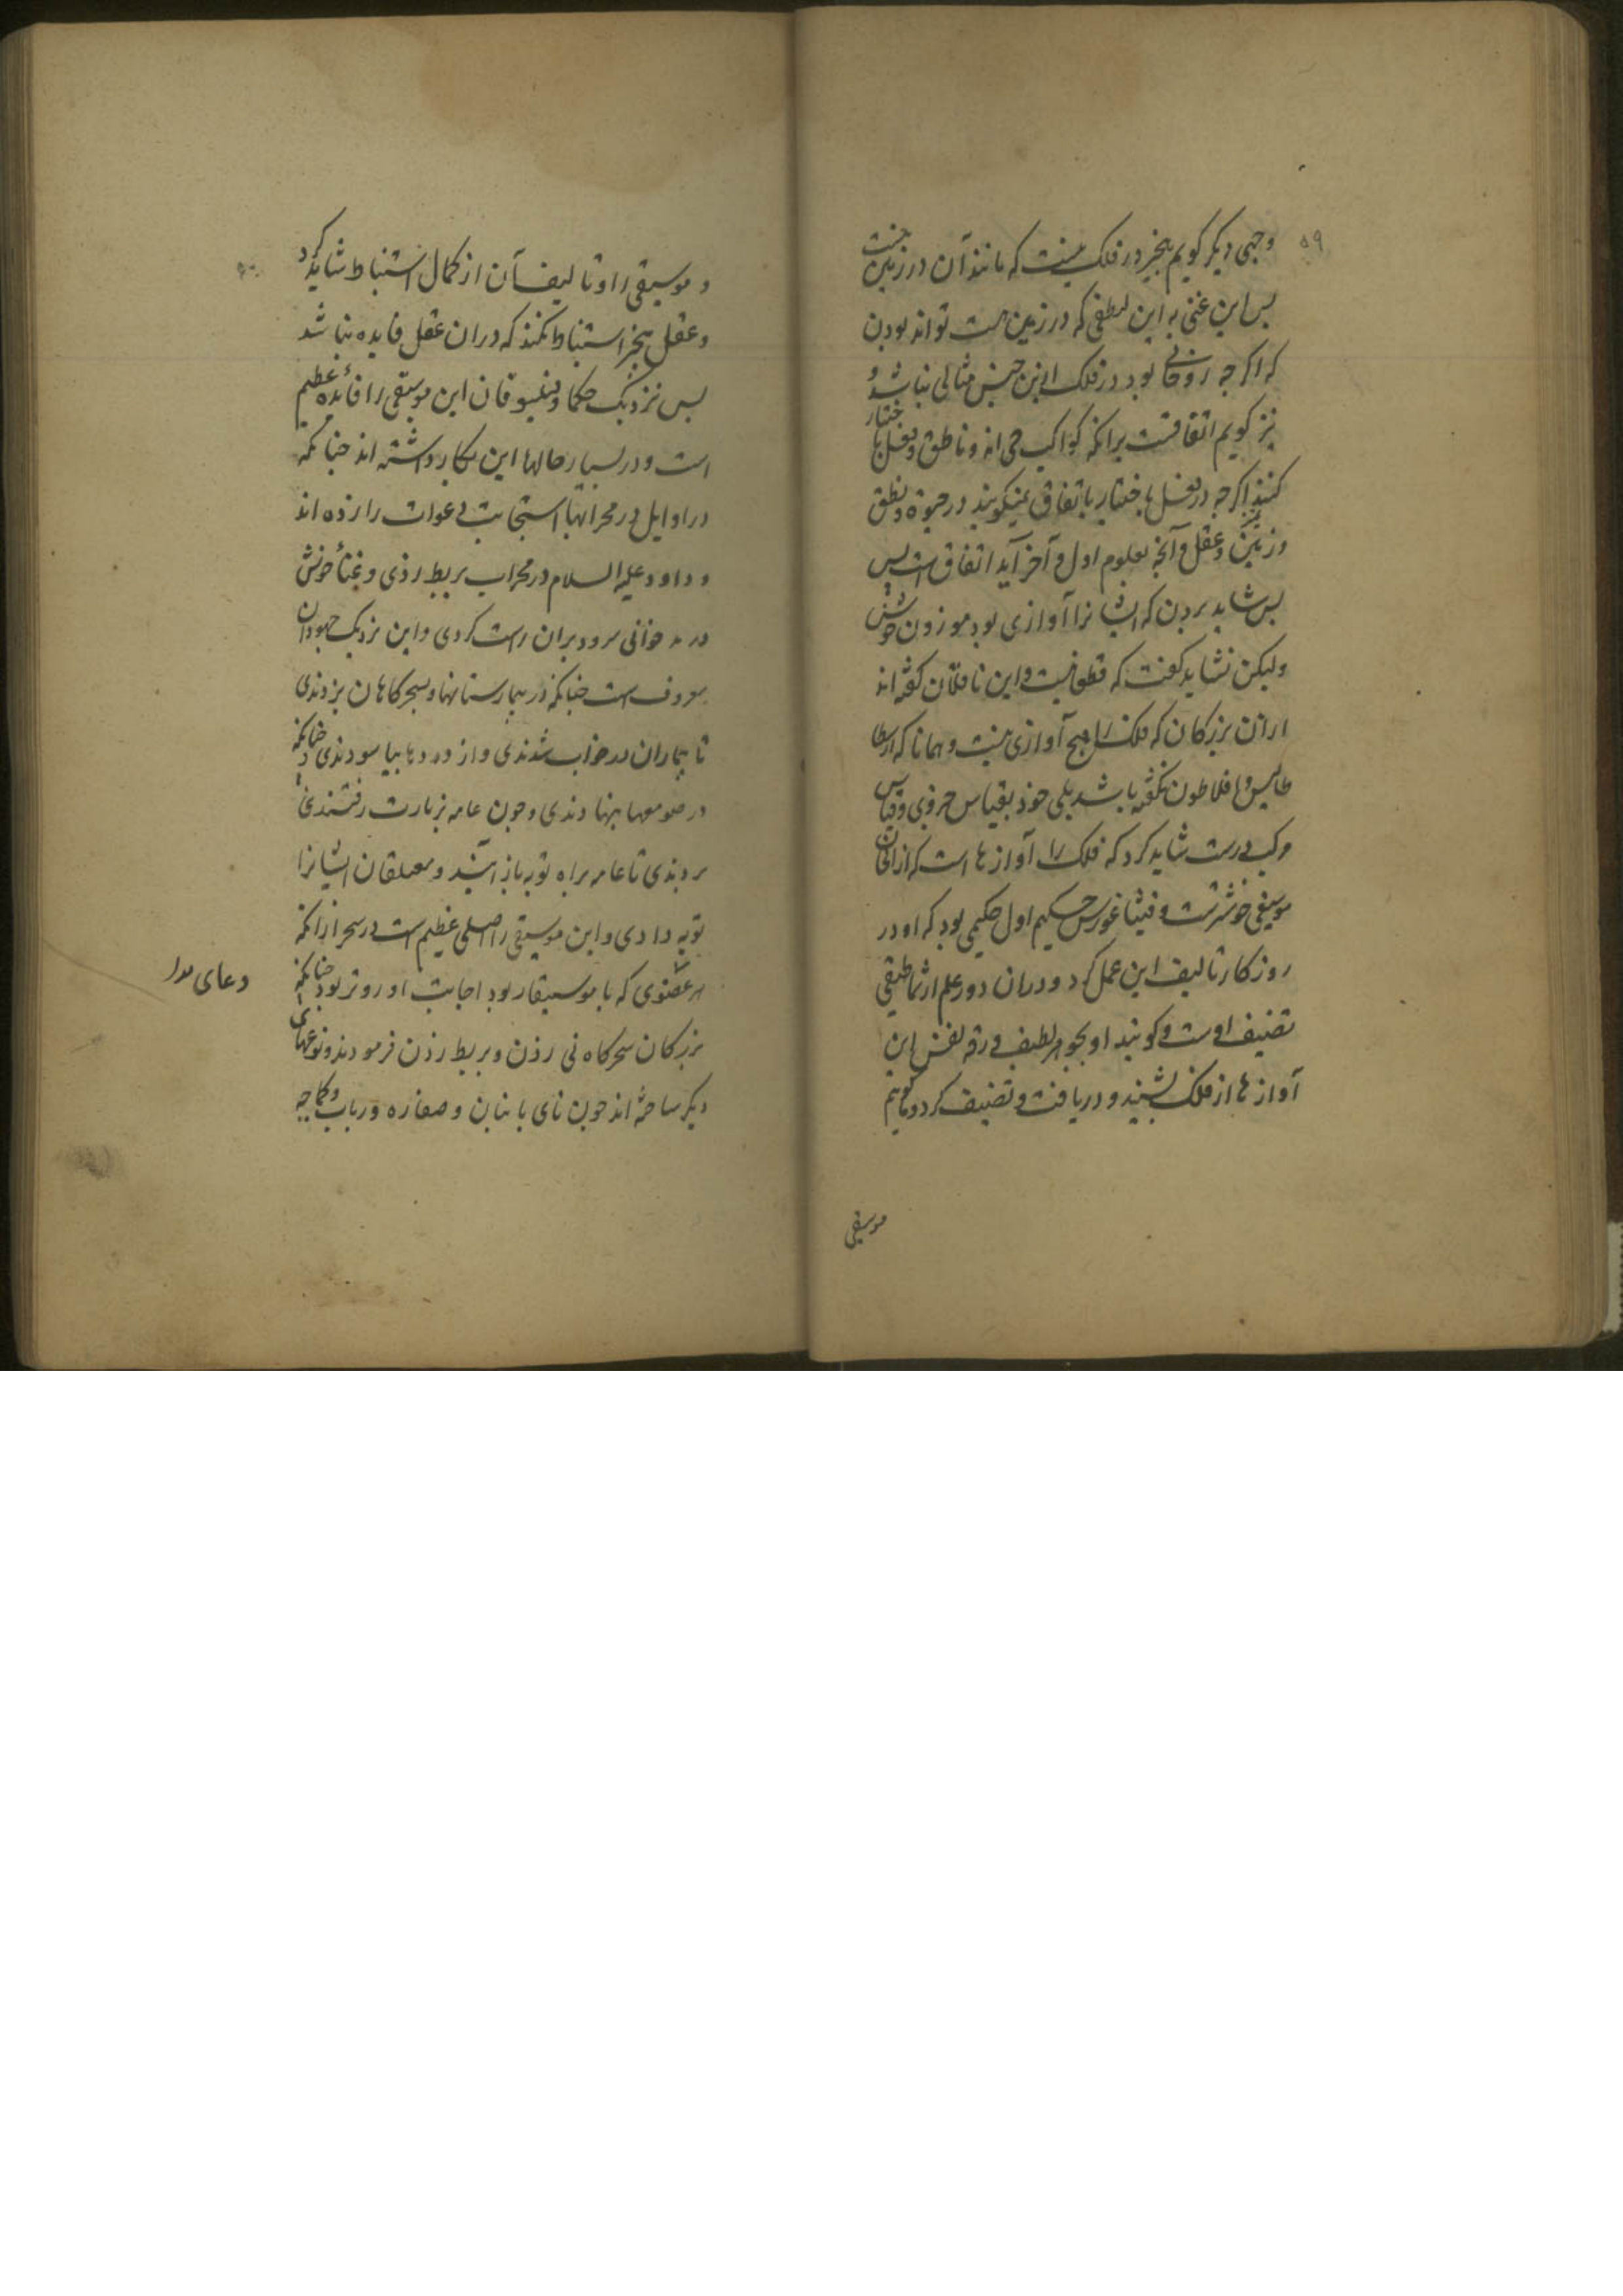 ۵۹
وجهی دیکر کویم هیچیز در فلک نیست که مانند آن در زمین نیست
پس این غنی به این لطفی که در زمین هست تواند بودن
که اکر چه روحانی بود در فلک ازین جنس مثالی نباشد و
نیز کویم اتفاقست برانکه کواکب حی اند و ناطق و فعل باختیار
کنند اکر چه در فعل باختیار باتفاق نمیکویند در حیوة و نطق
و تمیز و عقل و آنچه بعلوم اول و آخر آید اتفاق است پس
پس شاید بردن که ایشانرا آوازی بود موزون خوش
ولیکن نشاید کفت که قطع نیست و این ناقلان کفته اند
ازان بزرکان که فلک را هیچ آوازی نیست و همانا که ارسطا
طالیس و افلاطون نکفته باشد بلی خود بقیاس جزوی و قیاس
مرکب درست شاید کرد که فلک را آوازها است که از الحان
موسیقی خوشترست و فیثاغورس حکیم اول حکیمی بود که او در
روزکار تالیف این عمل کرد و دران دور علم ارثماطیقی
تصنیف اوست و کویند او بجوهر لطیف و رقه نفس این
آوازها از فلک بشنید و دریافت و تصنیف کرد و کویم
موسیقی
و موسیقی را و تالیف آن از کمال استنباط شاید کرد
و عقل هیچیز استنباط نکند که دران عقل فایده نباشد
پس نزدیک حکما و فیلسوفان این موسیقی را فائده عظیم
است و در بسیار حالها این بکار داشته اند چنانکه
در اوایل در محرابها استجابت دعوات را زده اند
و داود علیه السلام در محراب بربط زدی و غنأ خوش
در خوانی سرود بران راست کردی و این نزدیک جهودان
معروف است چنانکه در بیمارستانها و بسحرکاهان بزدندی
تا بیماران در خواب شدندی و از دردها بیاسودندی و چنانکه
در صومعها بنهادندی و چون عامه بزیارت رفتندی
بردندی تا عامه براه توبه باز آیند و معلقان ایشانرا
توبه دادی و این موسیقی را اصلی عظیم است در سحر ازانکه
هر عضوی که با موسیقار بود اجابت او زودتر بود چنانکه
دعای
بزرکان سحرکاه نی زدن و بربط زدن فرمودند و نوعهای
دیکر ساخته اند چون نای بانبان و صفاره و رباب و کمانچه